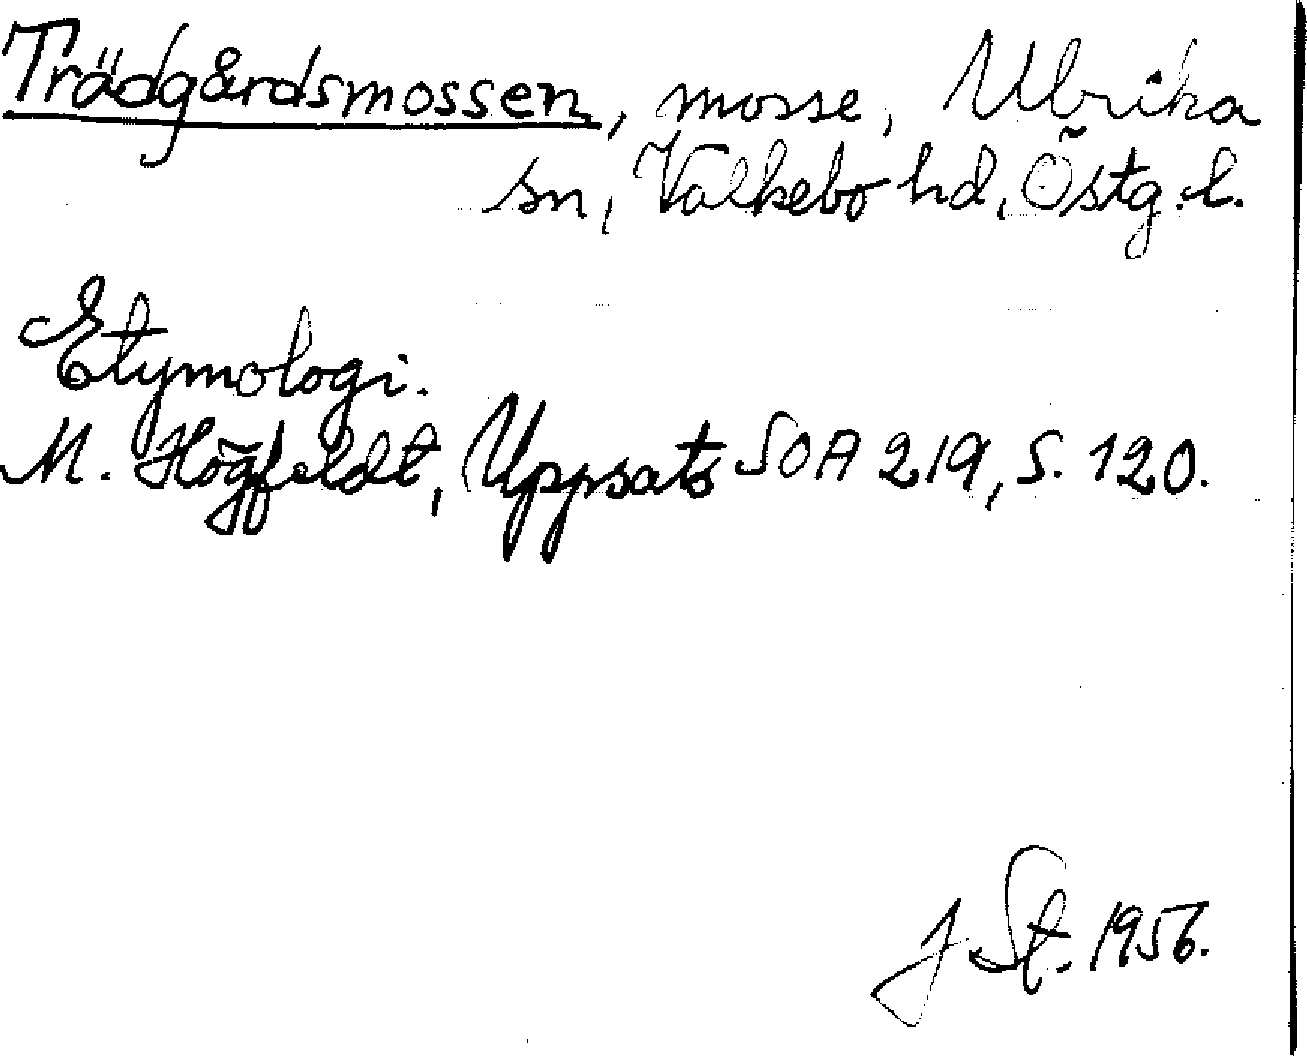 Trädgårdsmossen, mosse, Ulrika
sn, Valkebo hd, Östg. l.
Etymologi.
M. Högfeldt, Uppsats SOA 219, S. 120.
J St. 1956.